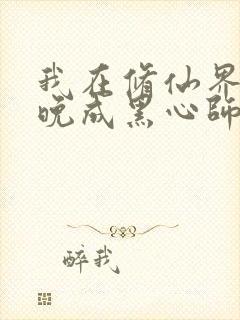 我在脩仙界
晚成黑心師
醉我